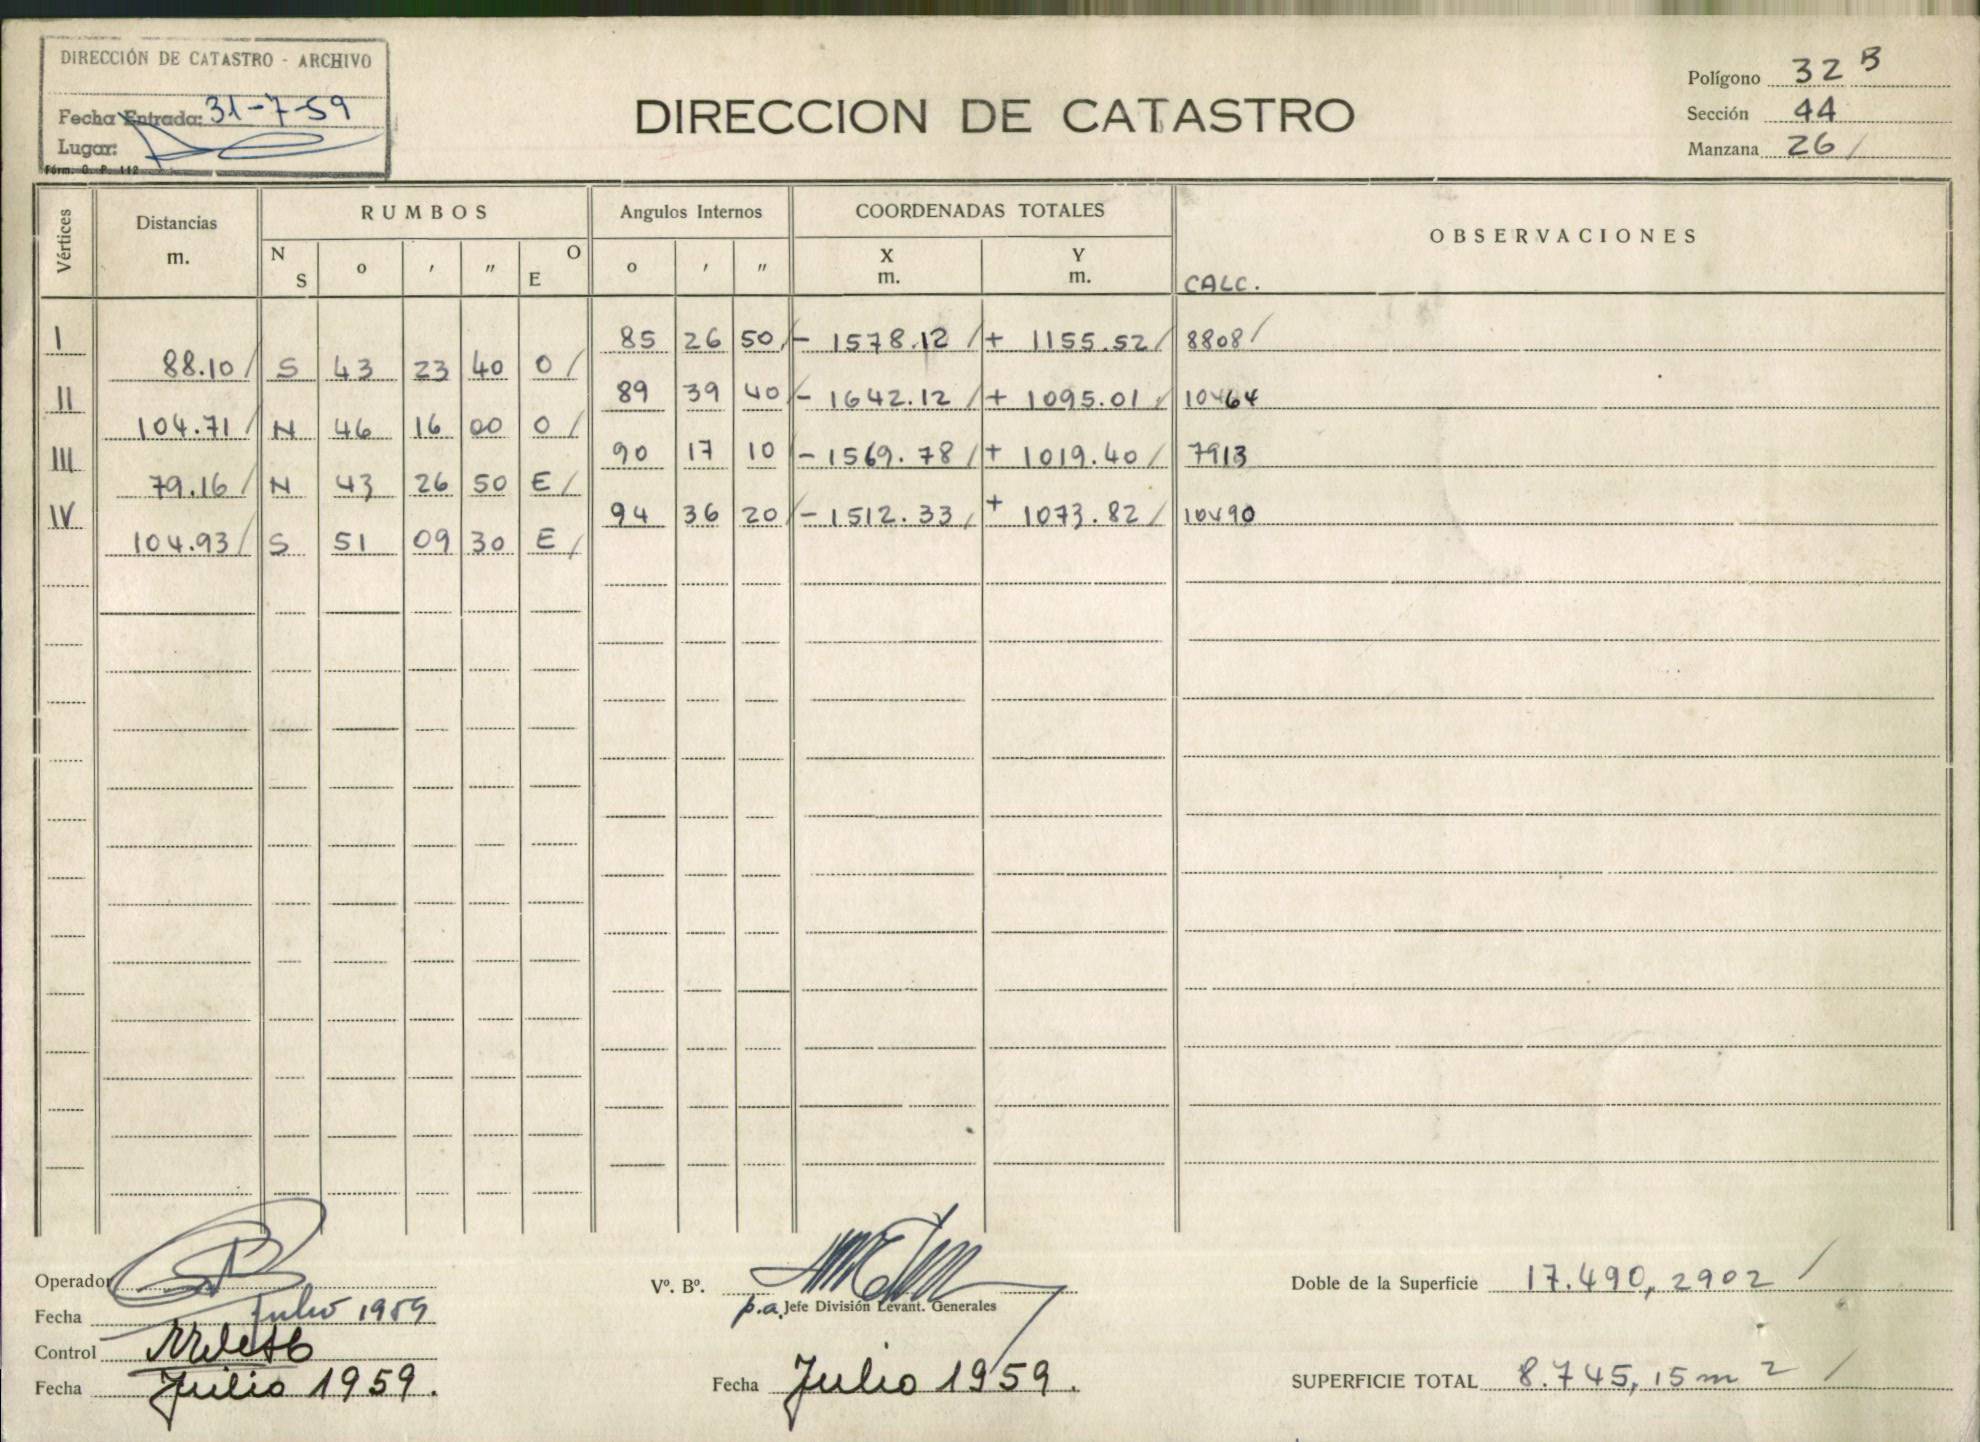 DIRECCIÓN DE CATASTRO - ARCHIVO
Fecha Entrada: 31-7-59
Lugar:
Fórm. O. P. 112
DIRECCION DE CATASTRO
Polígono 32 B
Sección 44
Manzana 26
Vértices
Distancias
m.
RUMBOS
N S
o ' "
O E
Angulos Internos
o ' "
COORDENADAS TOTALES
X
m.
Y
m.
OBSERVACIONES
CALC.
I 85 26 50 - 1578.12 + 1155.52 8808
88.10 S 43 23 40 O
II 89 39 40 - 1642.12 + 1095.01 10464
104.71 N 46 16 00 O
III 90 17 10 - 1569.78 + 1019.40 7913
79.16 N 43 26 50 E
IV 94 36 20 - 1512.33 + 1073.82 10490
104.93 S 51 09 30 E
Operador
Fecha Julio 1959
Control
Fecha Julio 1959.
Vº. Bº.
p.a. Jefe División Levant. Generales
Fecha Julio 1959.
Doble de la Superficie 17.490,2902
SUPERFICIE TOTAL 8.745,15 m 2